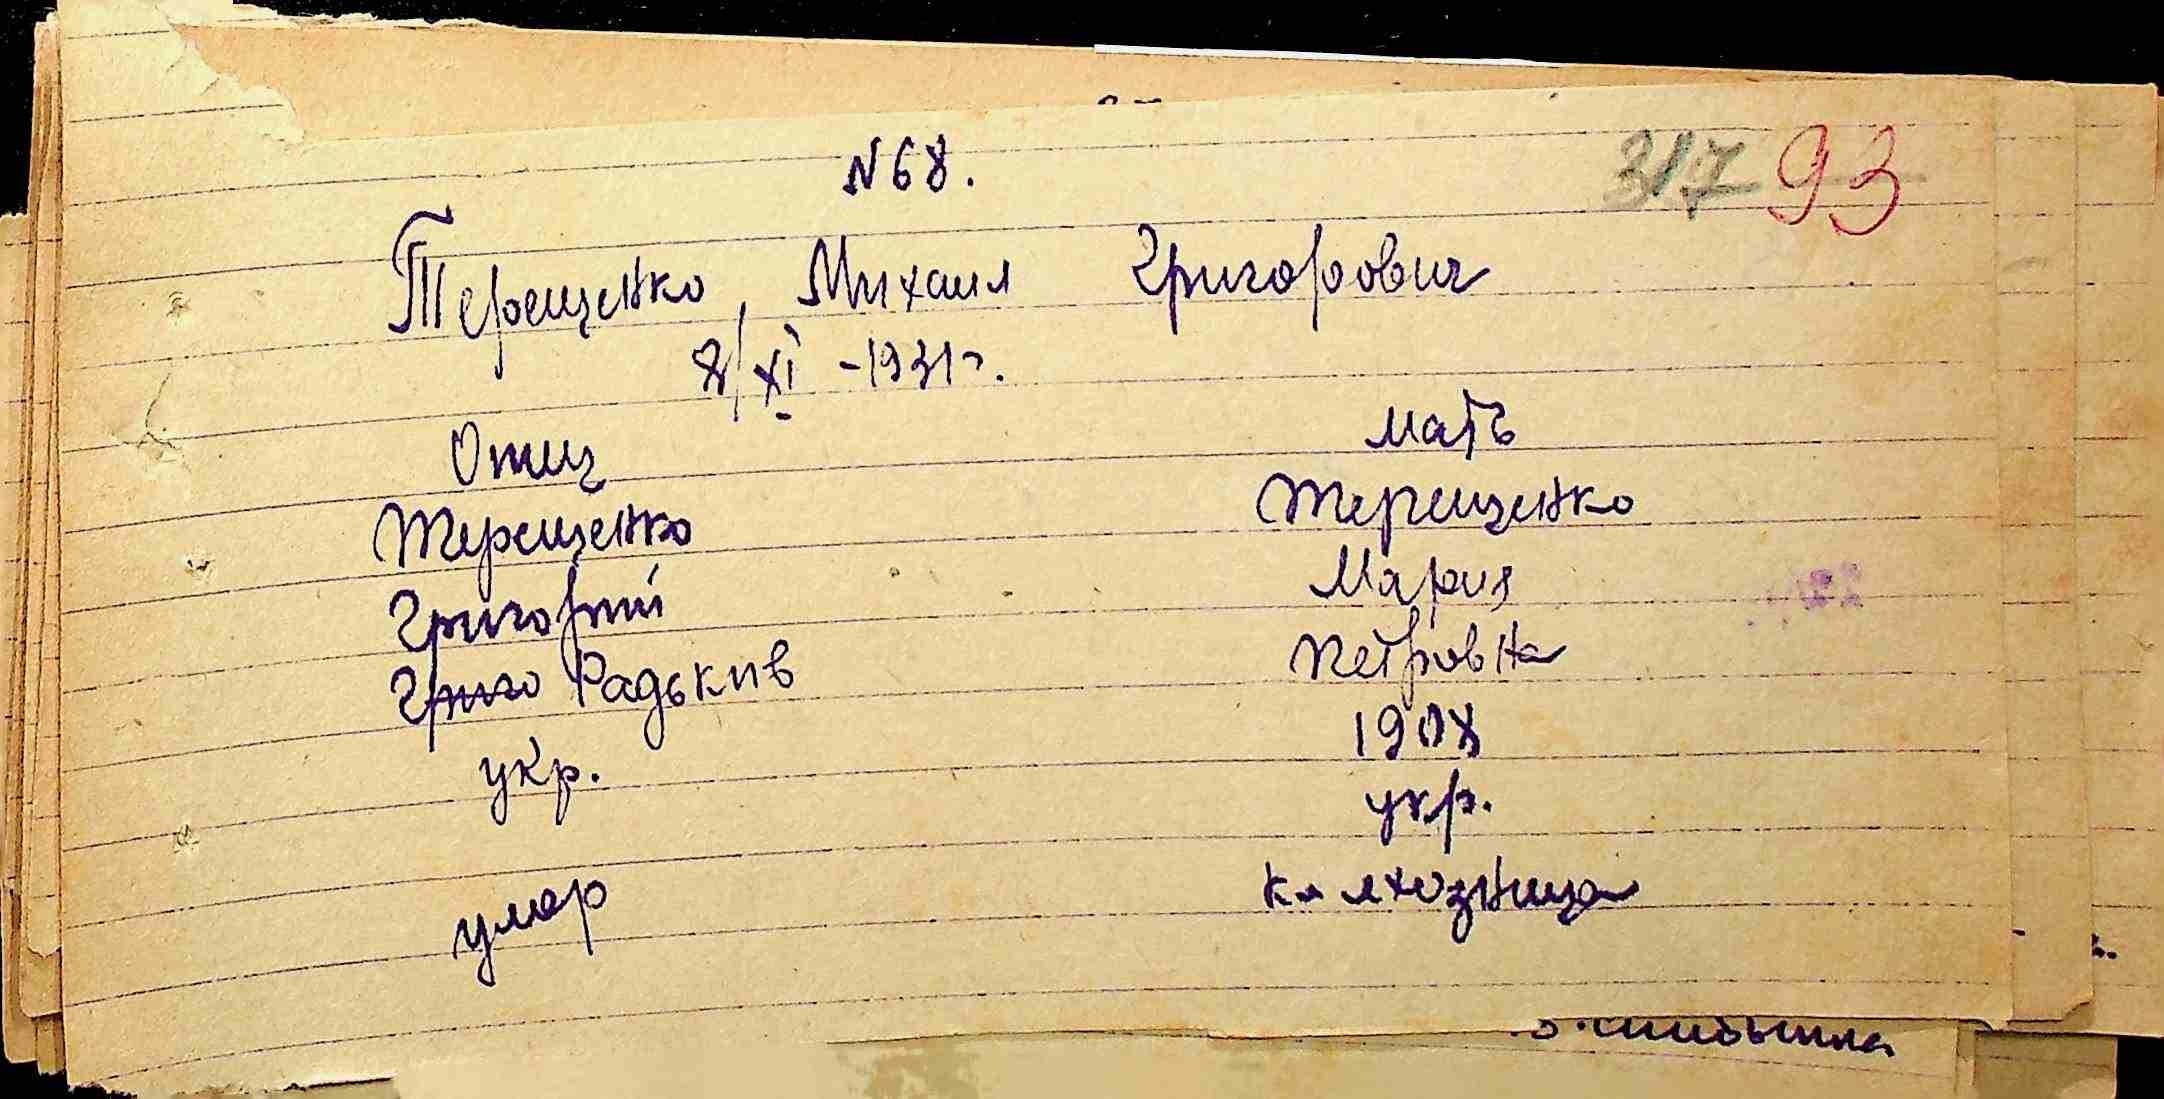 317 93
N68.
Терещенко, Михаил Григорович
8/XI -1931г.
Отец
Терещенко
Григорий
Григо Радькив
укр.
умер
мать
Терещенко
Мария
Петровна
1908
укр.
колхозница